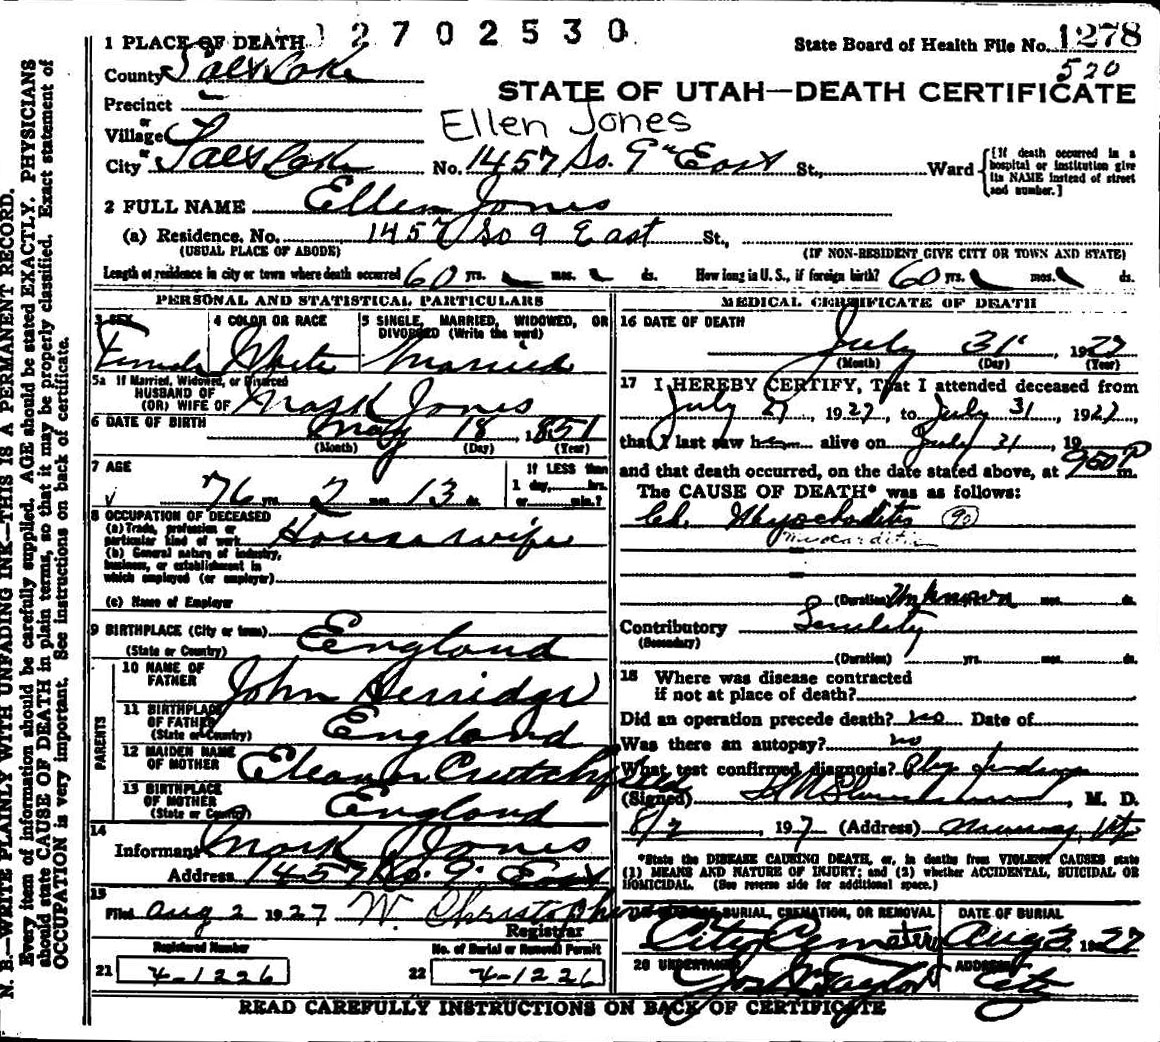 12702530
1 PLACE OF DEATH
State Board of Health File No. 1278
520
County Salt Lake
STATE OF UTAH—DEATH CERTIFICATE
Precinct
or
Village
Ellen Jones
or
City Salt Lake No. 1457 So. 9th East St., Ward
[If death occurred in a hospital or institution give its NAME instead of street and number.]
2 FULL NAME Ellen Jones
(a) Residence, No. 1457 So 9 East St.,
(USUAL PLACE OF ABODE) (IF NON-RESIDENT GIVE CITY OR TOWN AND STATE)
Length of residence in city or town where death occurred 60 yrs. mos. ds. How long in U. S., if foreign birth? 60 yrs. mos. ds.
PERSONAL AND STATISTICAL PARTICULARS
3 SEX
Female
4 COLOR OR RACE
White
5 SINGLE, MARRIED, WIDOWED, OR
DIVORCED (Write the word)
Married
5a If Married, Widowed, or Divorced
HUSBAND OF
(OR) WIFE OF Mark Jones
6 DATE OF BIRTH May 18 1851
(Month) (Day) (Year)
7 AGE
76 yrs. 2 mos. 13 ds.
If LESS than
1 day, hrs.
or min.?
8 OCCUPATION OF DECEASED
(a) Trade, profession or
particular kind of work Housewife
(b) General nature of industry,
business, or establishment in
which employed (or employer)
(c) Name of Employer
9 BIRTHPLACE (City or town)
(State or Country) England
PARENTS
10 NAME OF
FATHER John Herridge
11 BIRTHPLACE
OF FATHER
(State or Country) England
12 MAIDEN NAME
OF MOTHER Eleanor Crutchfield
13 BIRTHPLACE
OF MOTHER
(State or Country) England
14
Informant Mark Jones
Address 1457 So. 9. East
15
Filed Aug 2 1927 W. Christopherson
Registrar
Registered Number
21 4-1226
No. of Burial or Removal Permit
22 4-1226
MEDICAL CERTIFICATE OF DEATH
16 DATE OF DEATH
July 31 , 1927
(Month) (Day) (Year)
17 I HEREBY CERTIFY, That I attended deceased from
July 27 1927, to July 31, 1927,
that I last saw her alive on July 31, 19
and that death occurred, on the date stated above, at 950 P m.
The CAUSE OF DEATH* was as follows:
Ch. Myocarditis 90
myocarditis
(Duration) Unknown mos. ds.
Contributory Senility
(Secondary)
(Duration) yrs. mos. ds.
18 Where was disease contracted
if not at place of death?
Did an operation precede death? no Date of
Was there an autopsy? no
What test confirmed diagnosis? Phys findings
(Signed) , M. D.
8/2 , 1927 (Address) Murray, Utah
*State the DISEASE CAUSING DEATH, or, in deaths from VIOLENT CAUSES state
(1) MEANS AND NATURE OF INJURY; and (2) whether ACCIDENTAL, SUICIDAL OR
HOMICIDAL. (See reverse side for additional space.)
BURIAL, CREMATION, OR REMOVAL
City Cemetery
DATE OF BURIAL
Aug 3, 1927
20 UNDERTAKER
Jos Wm Taylor
ADDRESS
City
READ CAREFULLY INSTRUCTIONS ON BACK OF CERTIFICATE
N. B.—WRITE PLAINLY WITH UNFADING INK—THIS IS A PERMANENT RECORD.
Every item of information should be carefully supplied. AGE should be stated EXACTLY. PHYSICIANS
should state CAUSE OF DEATH in plain terms, so that it may be properly classified. Exact statement of
OCCUPATION is very important. See instructions on back of certificate.